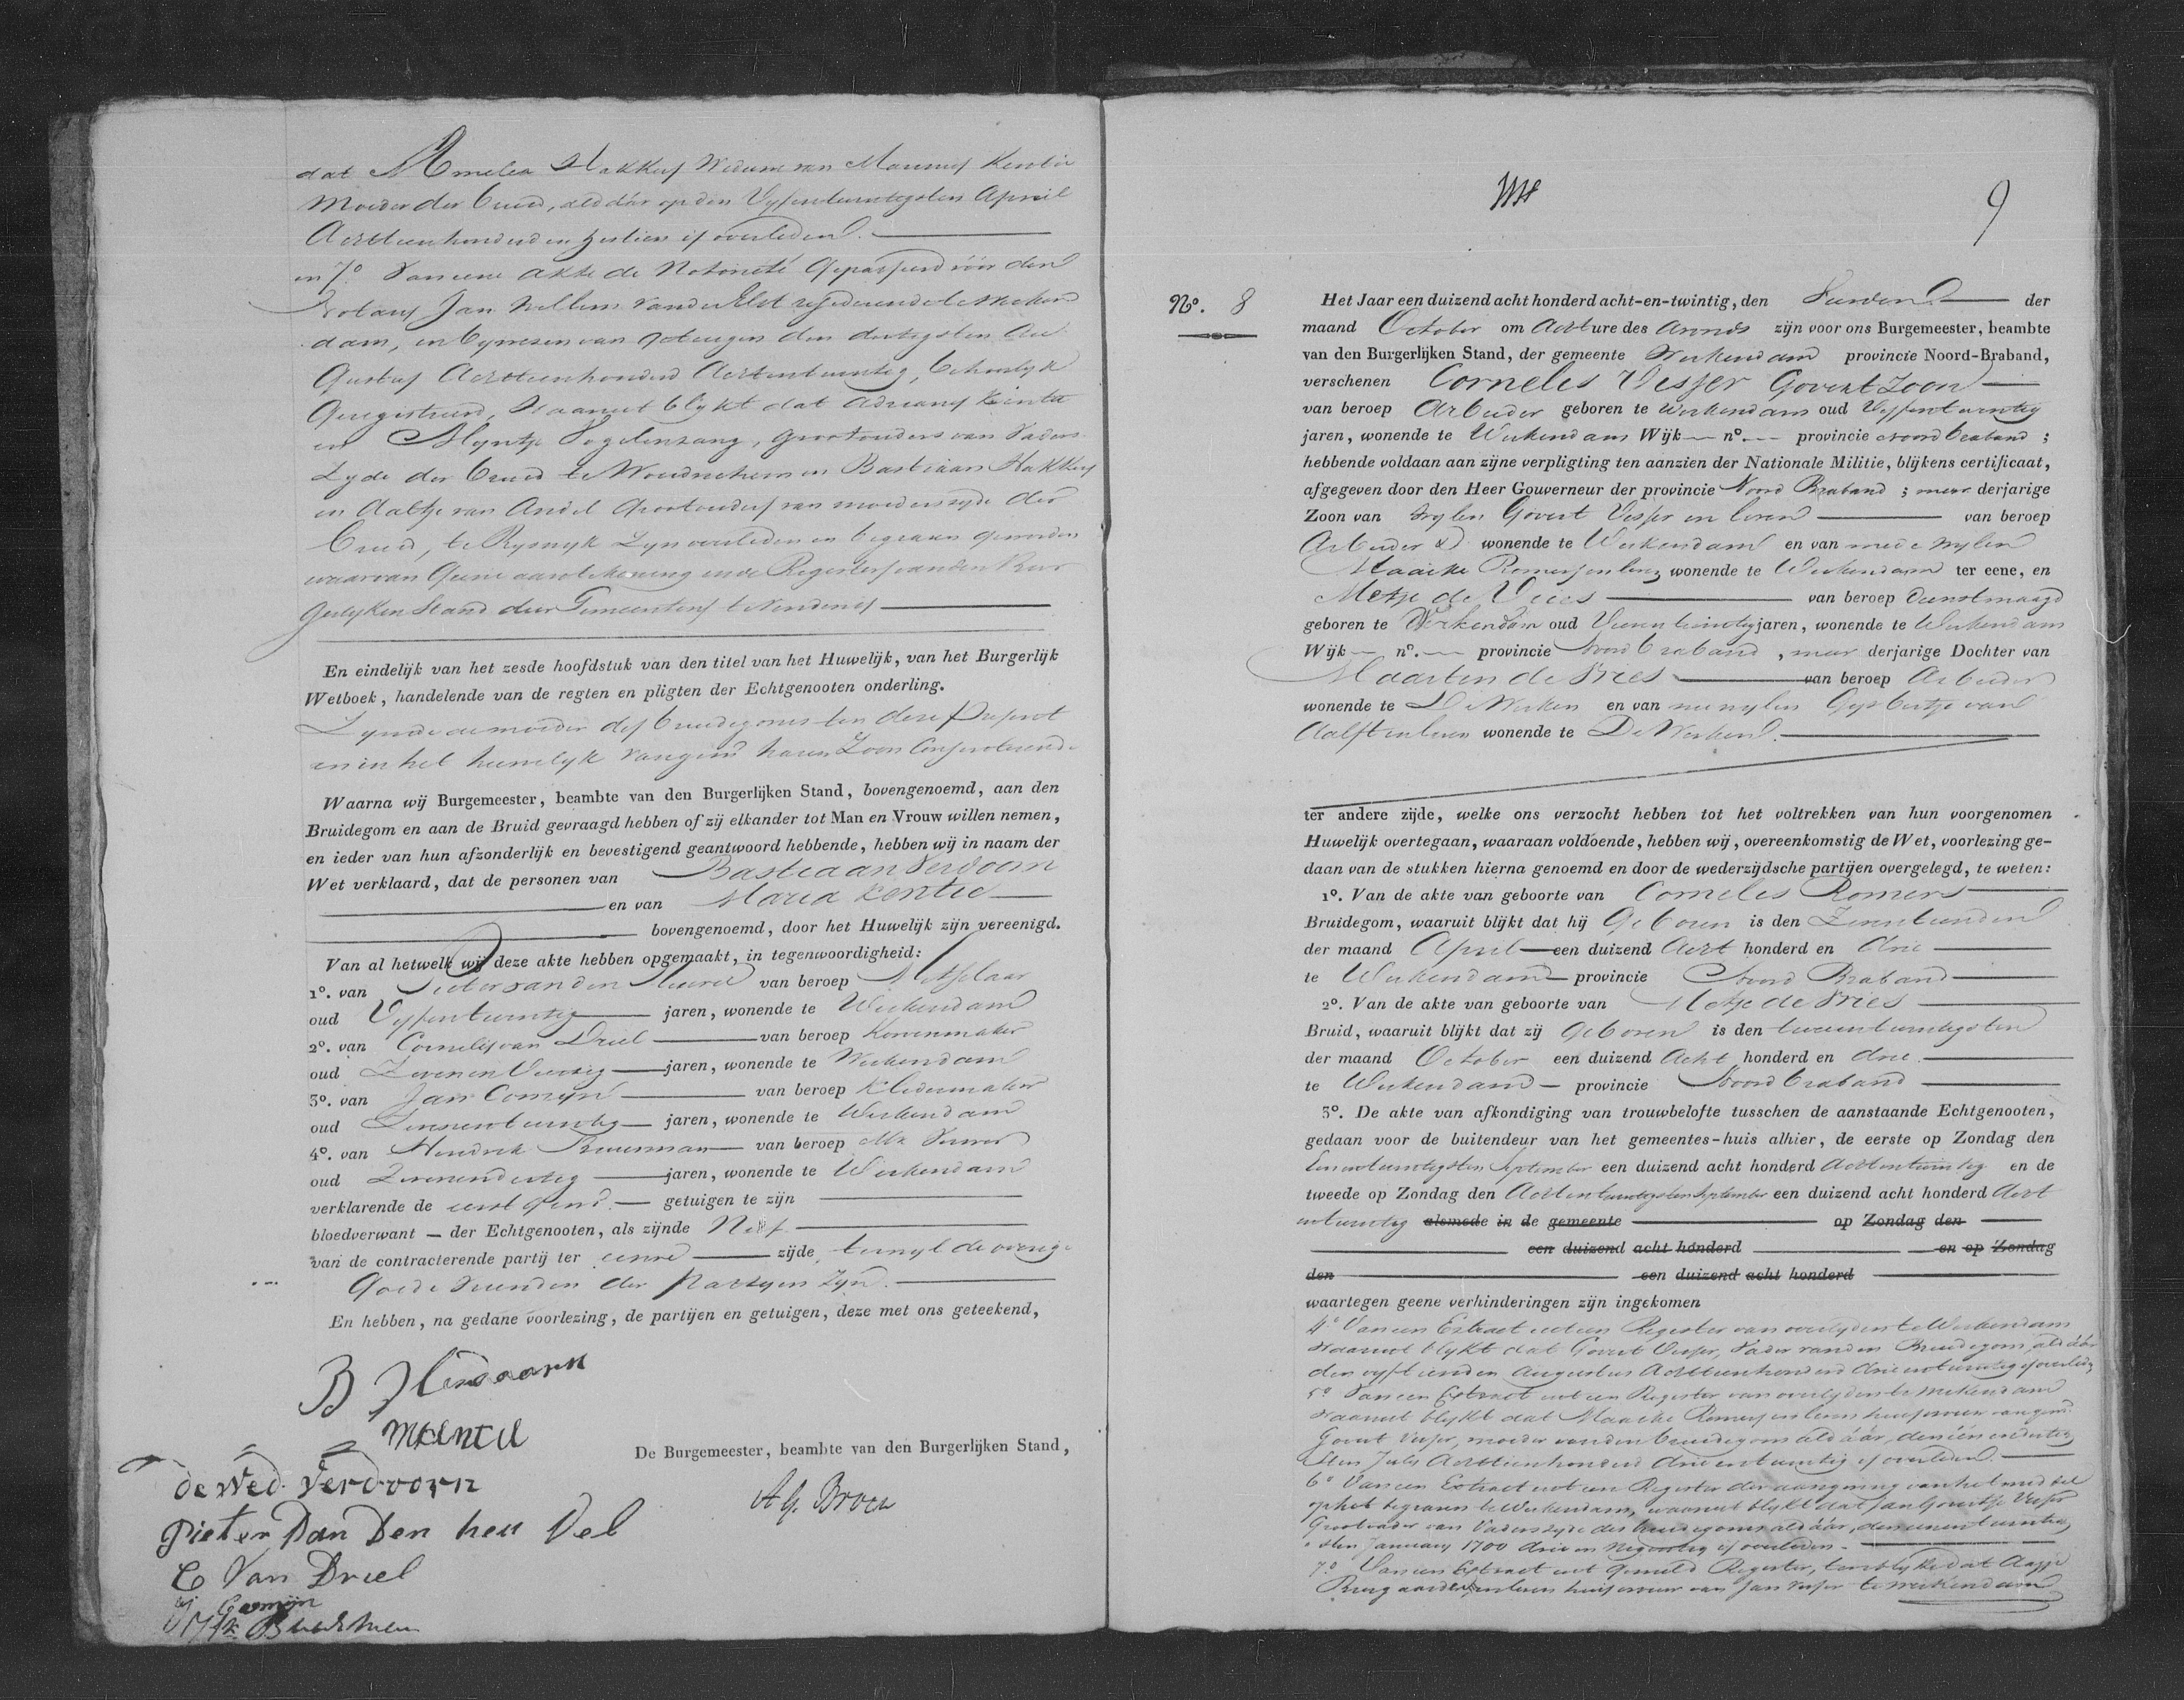 dat Hakkers Weduwe van Kentie
Moeder der bruid, aldáár op den Vyfentwintigsten April
Achttienhonderd en zestien is overleden.
en 7º Van eene Akte de Notorieté Gepasseerd vóór den
Notaris Jan Willem van der Elst residerende te Werken
dam, in bywezen van getuigen den dertigsten Au
gustus Achttienhonderd Achtentwintig, behoorlyk
Geregistreerd, Waaruit blykt dat Adrianus Kentie
en Vogelenzang, Grootouders van Vaders
Zyde der bruid te Woudrichem en Bastiaan Hakkers
en Aaltje van Andel Grootouders van moederszyde der
bruid, te Ryswyk Zyn overleden en begraven geworden
waarvan Geene aanteekening in de Registers van den Bur
gerlyken Stand dier Gemeentens te vinden is
En eindelijk van het zesde hoofdstuk van den titel van het Huwelijk, van het Burgerlijk
Wetboek, handelende van de regten en pligten der Echtgenooten onderling.
Zynde de moeder des bruidegoms ten deze present
en in het huwelyk van gem haren Zoon Consenterende
Waarna wij Burgemeester, beambte van den Burgerlijken Stand, bovengenoemd, aan den
Bruidegom en aan de Bruid gevraagd hebben of zij elkander tot Man en Vrouw willen nemen,
en ieder van hun afzonderlijk en bevestigend geantwoord hebbende, hebben wij in naam der
Wet verklaard, dat de personen van Bastiaan Verdoorn
en van Maria Kentie
bovengenoemd, door het Huwelijk zijn vereenigd.
Van al hetwelk wij deze akte hebben opgemaakt, in tegenwoordigheid:
1º. van Pieter van den Heuvel van beroep Metselaar
oud Vyfentwintig jaren, wonende te Werkendam
2º. van Cornelis van Driel van beroep Korvenmaker
oud Zevenenveertig jaren, wonende te Werkendam
3º. van Jan Comyn van beroep Kledermaker
oud Zevenentwintig jaren, wonende te Werkendam
4º. van Hendrik van beroep
oud Zevenendertig jaren, wonende te Werkendam
verklarende de eerst gem. getuigen te zijn
bloedverwant – der Echtgenooten, als zijnde Neef
van de contracterende partij ter eenre zijde, terwyl de overige
Goede Vrienden der Partyen Zyn.
En hebben, na gedane voorlezing, de partijen en getuigen, deze met ons geteekend,
B Verdoorn
M Kentie
De Burgemeester, beambte van den Burgerlijken Stand,
de Wed. Verdoorn
Pieter van Den heu Vel
C Van Driel
Comijn
9
Nº. 8
Het Jaar een duizend acht honderd acht-en-twintig, den Tienden der
maand October om Acht ure des Avonds zijn voor ons Burgemeester, beambte
van den Burgerlijken Stand, der gemeente Werkendam provincie Noord-Braband,
verschenen Cornelis Visser Govert Zoon
van beroep Arbeider geboren te Werkendam oud Vyfentwintig
jaren, wonende te Werkendam Wijk – nº. – provincie Noord braband;
hebbende voldaan aan zijne verpligting ten aanzien der Nationale Militie, blijkens certificaat,
afgegeven door den Heer Gouverneur der provincie Noord Braband; meer derjarige
Zoon van wylen Govert Visser in leven van beroep
Arbeider wonende te Werkendam en van mede wylen
Maaike Romers in leven wonende te Werkendam ter eene, en
Metje de Vries van beroep Dienstmaagd
geboren te Werkendam oud Vierentwintig jaren, wonende te Werkendam
Wijk – nº. – provincie Noord braband, meer derjarige Dochter van
Maarten de Vries van beroep Arbeider
wonende te De Werken en van nu wylen Gysbertje van
Aalst in leven wonende te De Werken.
ter andere zijde, welke ons verzocht hebben tot het voltrekken van hun voorgenomen
Huwelijk overtegaan, waaraan voldoende, hebben wij, overeenkomstig de Wet, voorlezing ge-
daan van de stukken hierna genoemd en door de wederzijdsche partijen overgelegd, te weten:
1º. Van de akte van geboorte van Cornelis Romers
Bruidegom, waaruit blijkt dat hij Geboren is den Zeventienden
der maand April een duizend Acht honderd en drie
te Werkendam provincie Noord Braband
2º. Van de akte van geboorte van Metje de Vries
Bruid, waaruit blijkt dat zij Geboren is den tweeentwintigsten
der maand October een duizend Acht honderd en drie.
te Werkendam – provincie Noord braband
3º. De akte van afkondiging van trouwbelofte tusschen de aanstaande Echtgenooten,
gedaan voor de buitendeur van het gemeentes-huis alhier, de eerste op Zondag den
Eenentwintigsten September een duizend acht honderd Achtentwintig en de
tweede op Zondag den Achtentwintigsten September een duizend acht honderd Acht
entwintig alsmede in de gemeente op Zondag den
een duizend acht honderd en op Zondag
den een duizend acht honderd
waartegen geene verhinderingen zijn ingekomen
4º Van een Extract uit een Register van overlyden te Werkendam
Waaruit blykt dat Govert Visser, Vader van den Bruidegom, aldáár
den vyftienden Augustus Achttienhonderd drieentwintig is overleden
5º Van een Extract uit een Register van overlyden te Werkendam
Waaruit blykt dat Maaike Romers in leven huisvrouw van gem.
Govert Visser, moeder van den bruidegom aldáár, den één en dertig
sten July Achttienhonderd drieentwintig is overleden.
6º Van een Extract uit een Register der aangeving van het middel
op het begraven te Werkendam, waaruit blykt dat Jan Govertse Visser
Grootvader van Vaderszyde des bruidegoms aldáár, den eenentwintig
sten January 1700 drie en Negentig is overleden.
7º Van een Extract uit gemeld Register, ten blyke dat
in leven huisvrouw van Jan Visser te Werkendam